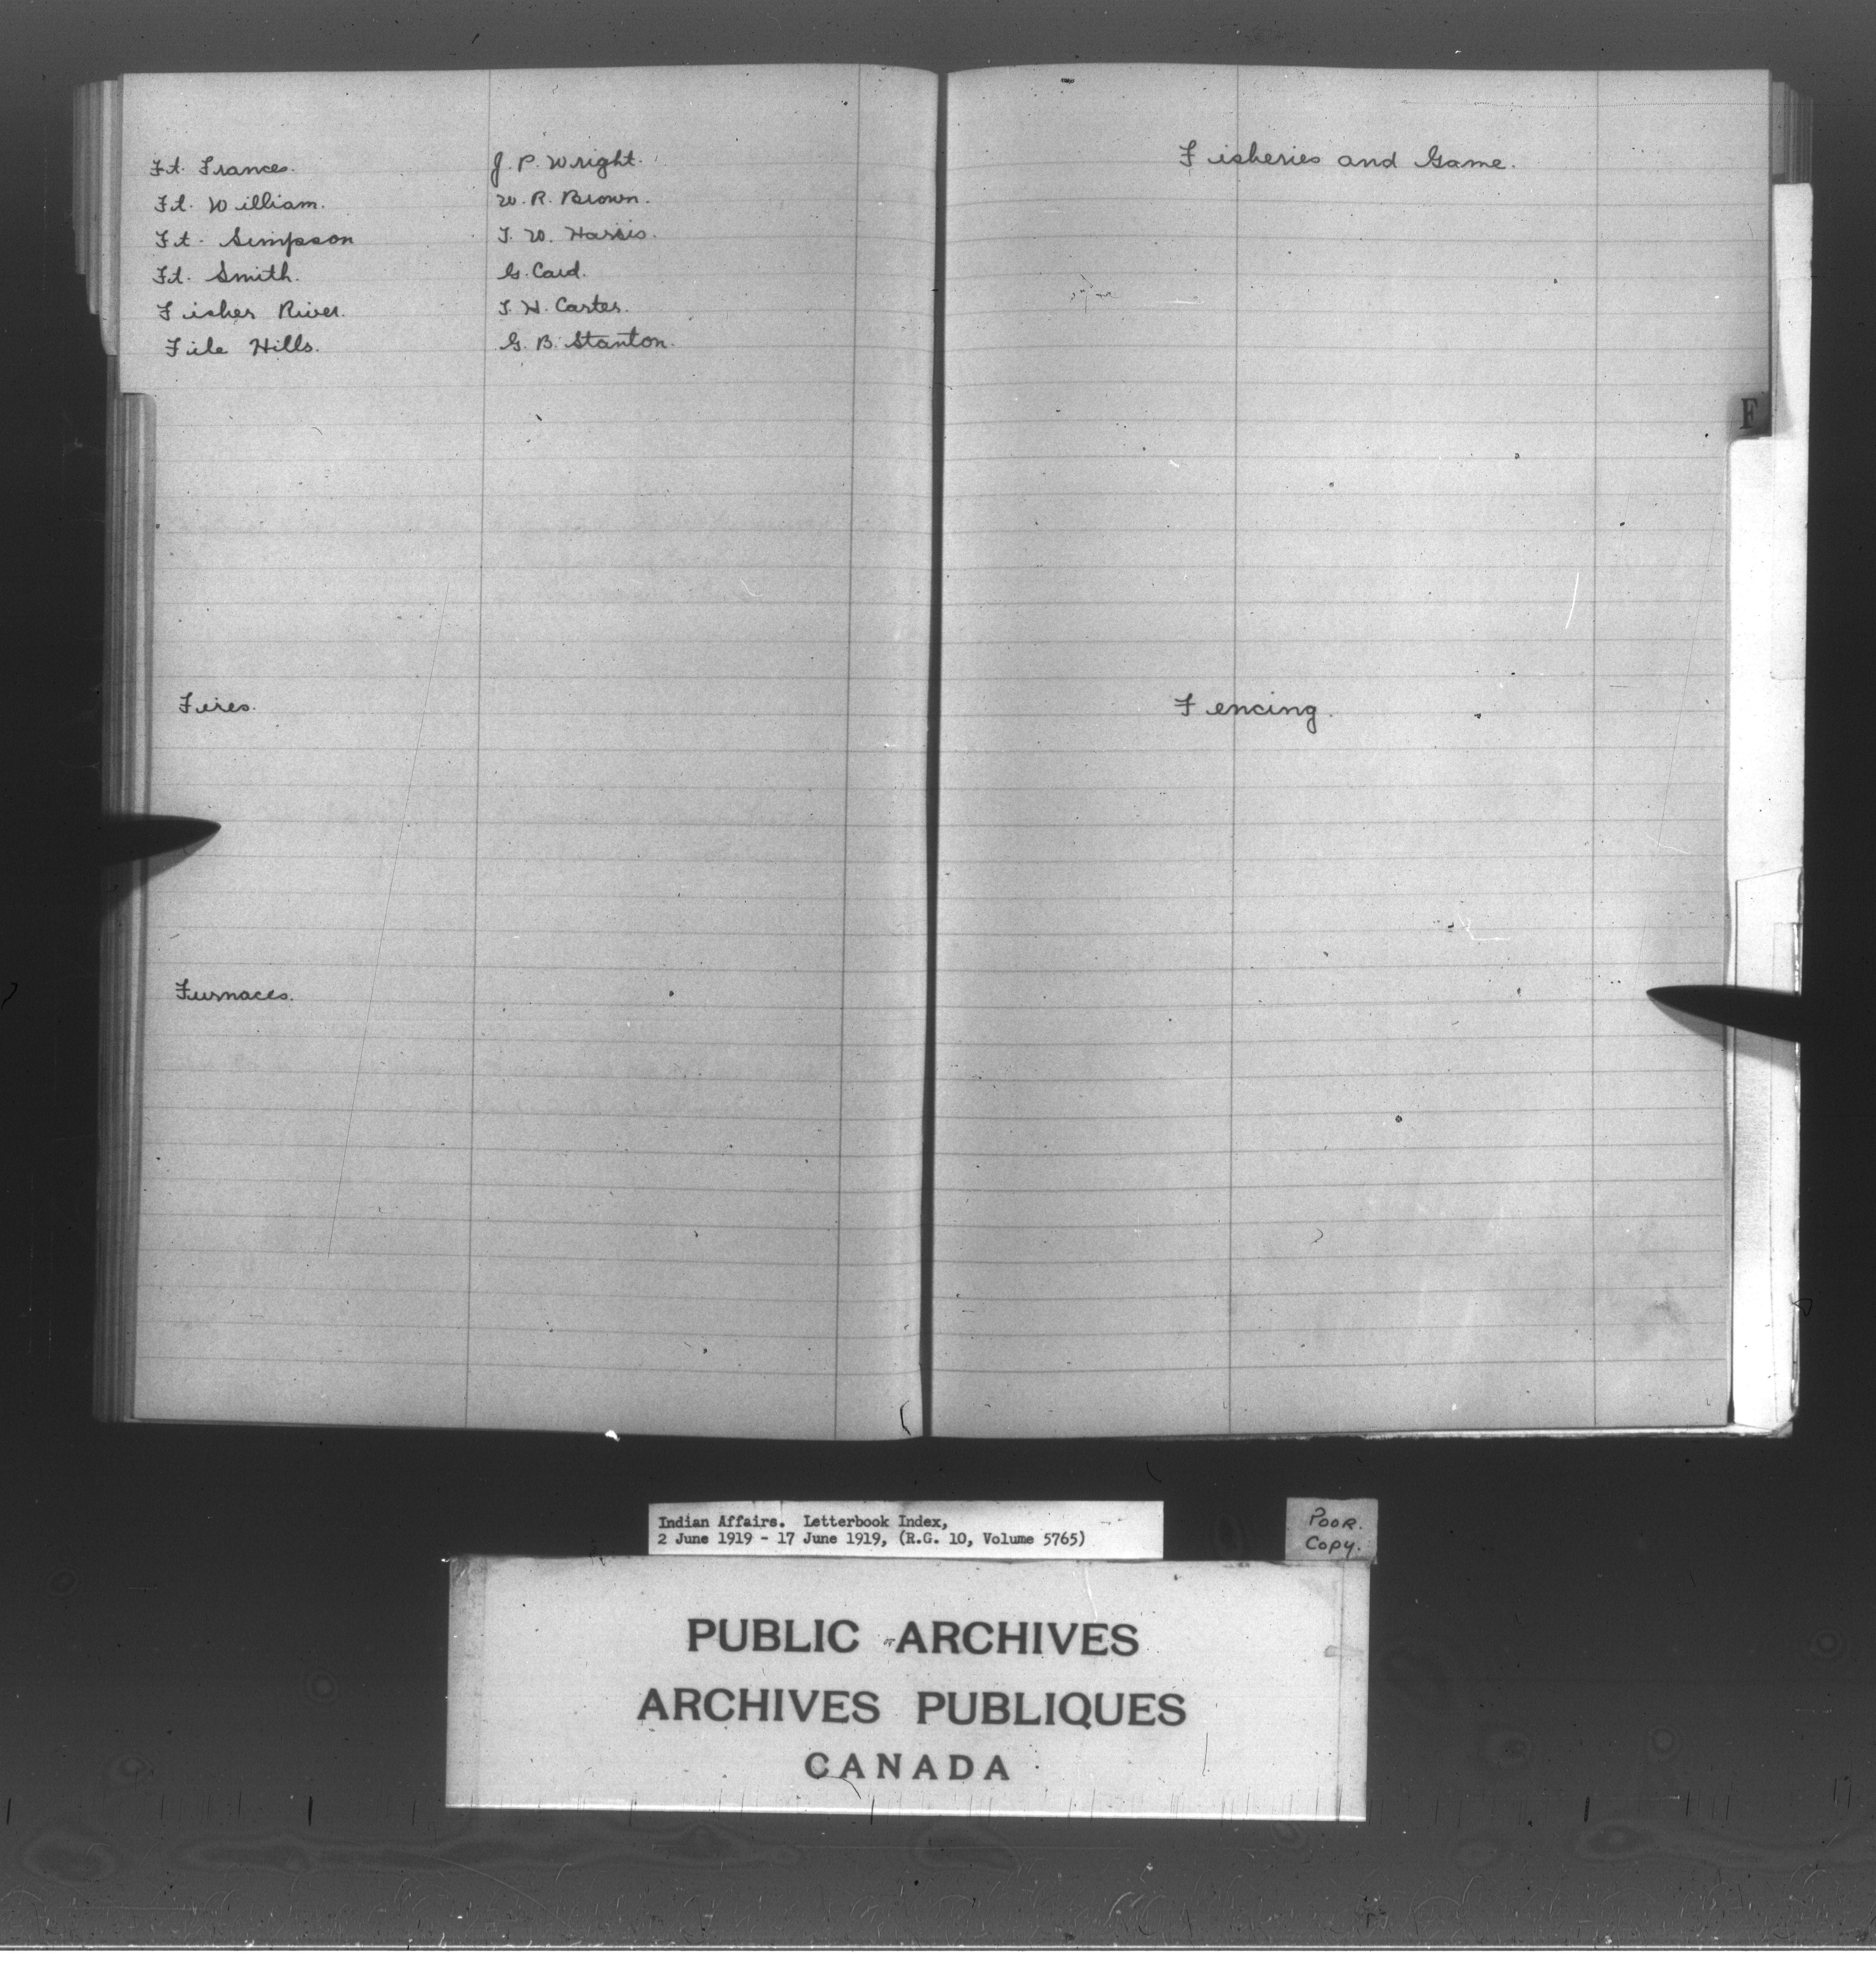 Ft. Frances. J. P. Wright.
Ft. William. W. R. Brown.
Ft. Simpson T. W. Harris.
Ft. Smith. G. Card.
Fisher River. T. H. Carter.
File Hills. G. B. Stanton.
Fires.
Furnaces.
Fisheries and Game.
F
Fencing.
Indian Affairs. Letterbook Index,
2 June 1919 - 17 June 1919, (R.G. 10, Volume 5765)
POOR.
COPY.
PUBLIC ARCHIVES
ARCHIVES PUBLIQUES
CANADA